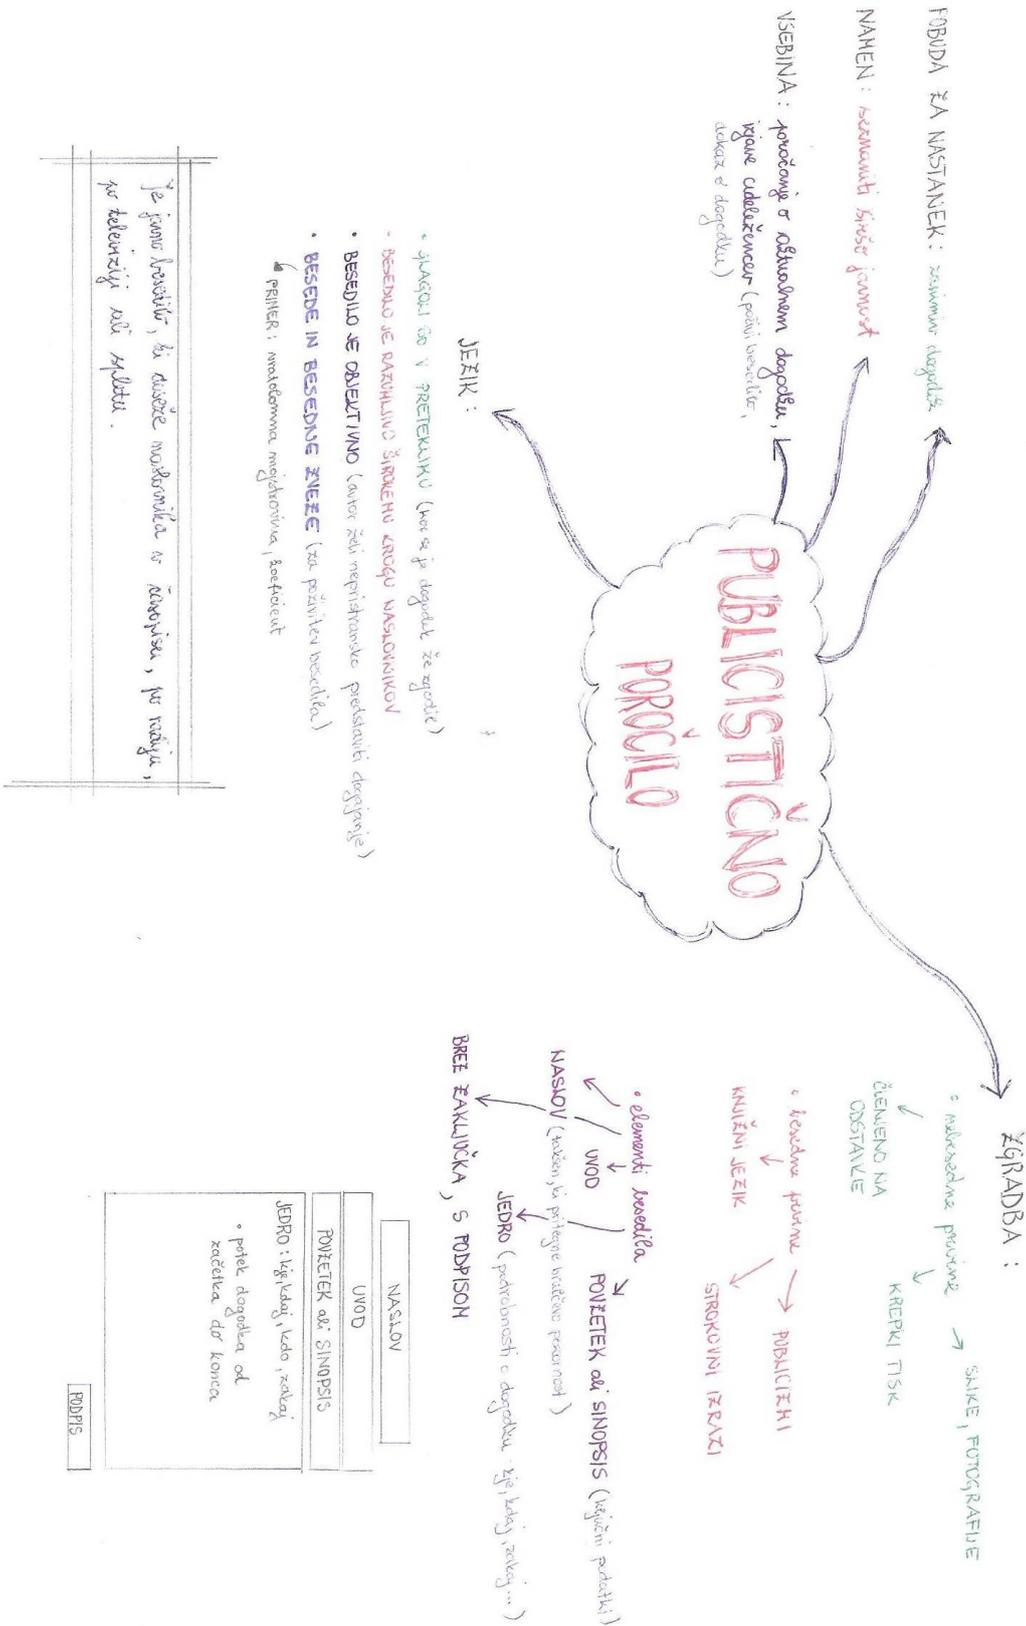 POBUDA ZA NASTANEK : zanimiv dogodek
NAMEN : seznaniti širšo javnost
VSEBINA : poročanje o aktualnem dogodku,
izjave udeležencev (poživi besedilo,
dokaz o dogodku)
PUBLICISTIČNO
POROČILO
JEZIK :
• GLAGOLI SO V PRETEKLIKU (ker se je dogodek že zgodil)
• BESEDILO JE RAZUMLJIVO ŠIROKEMU KROGU NASLOVNIKOV
• BESEDILO JE OBJEKTIVNO (avtor želi nepristransko predstaviti dogajanje)
• BESEDE IN BESEDNE ZVEZE (za poživitev besedila)
PRIMER : vratolomna mojstrovina, koeficient
Je javno besedilo, ki doseže naslovnika v časopisu, po radiju,
po televiziji ali spletu.
ZGRADBA :
• nebesedne prvine → SLIKE, FOTOGRAFIJE
ČLENJENO NA
ODSTAVKE
KREPKI TISK
• besedne prvine → PUBLICIZMI
KNJIŽNI JEZIK
STROKOVNI IZRAZI
• elementi besedila
UVOD
POVZETEK ali SINOPSIS (ključni podatki)
NASLOV (takšen, ki pritegne bralčevo pozornost)
JEDRO (podrobnosti o dogodku - kje, kdaj, zakaj ...)
BREZ ZAKLJUČKA, S PODPISOM
NASLOV
UVOD
POVZETEK ali SINOPSIS
JEDRO : kje, kdaj, kdo, zakaj
• potek dogodka od
začetka do konca
PODPIS